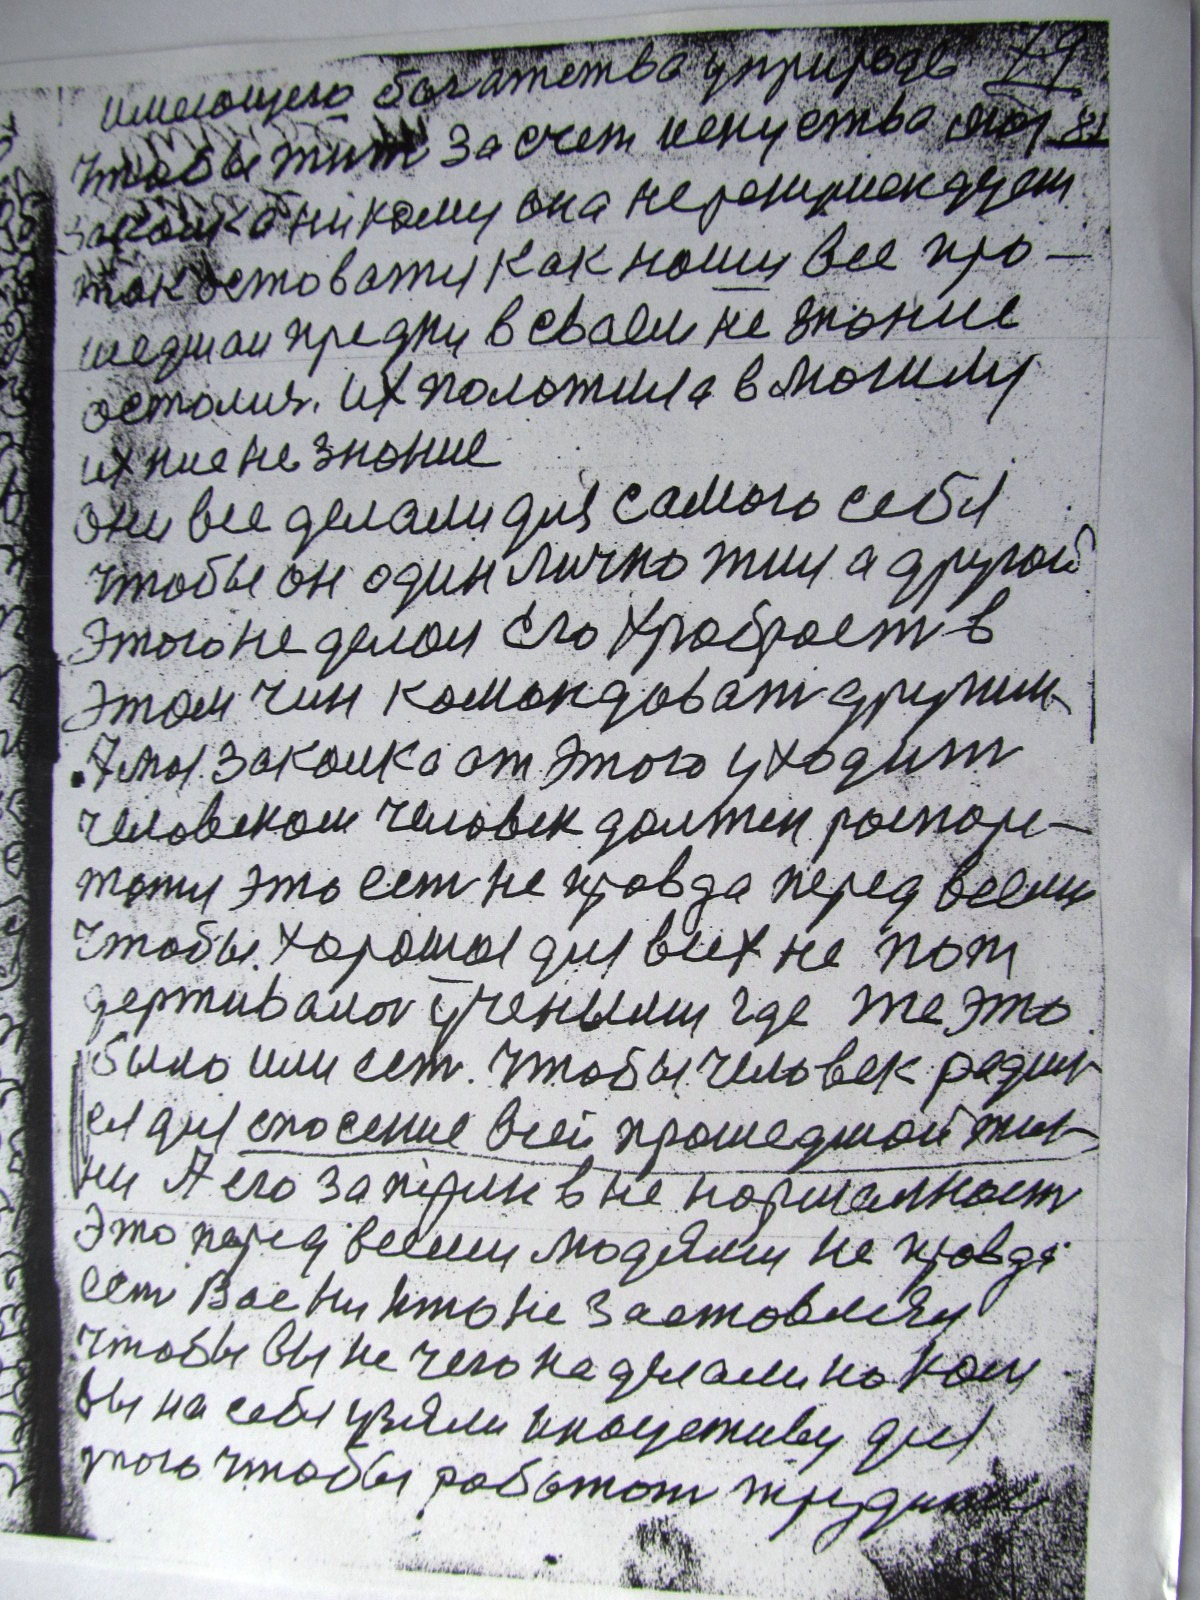 имеющего богатства у природе 79
чтобы жит за счет искуства моя 81
закалка никому она не рекамендует
так остоватся как наши все про-
шедшаи предки в сваем не знание
осталис. их положила в могилу
ихние не знание
они все делали для самого себя
чтобы он один лично жил а другой
этого не делал Его храброст в
этом чин командоват другим
А моя закалка от этого уходит
человеком человек должен
это ест не правда перед всеми
чтобы хорошое для всех не пот
держивалос учеными где же это
было или ест. Чтобы человек радил
ся для спосение всей прошедшой жиз
ни А его запёрли в не нормалност
это перед всеми людями не правда
ест Вас ни кто не заставлял
чтобы вы не чего не делали но кол
вы на себя узяли инацативу для
того чтобы работат